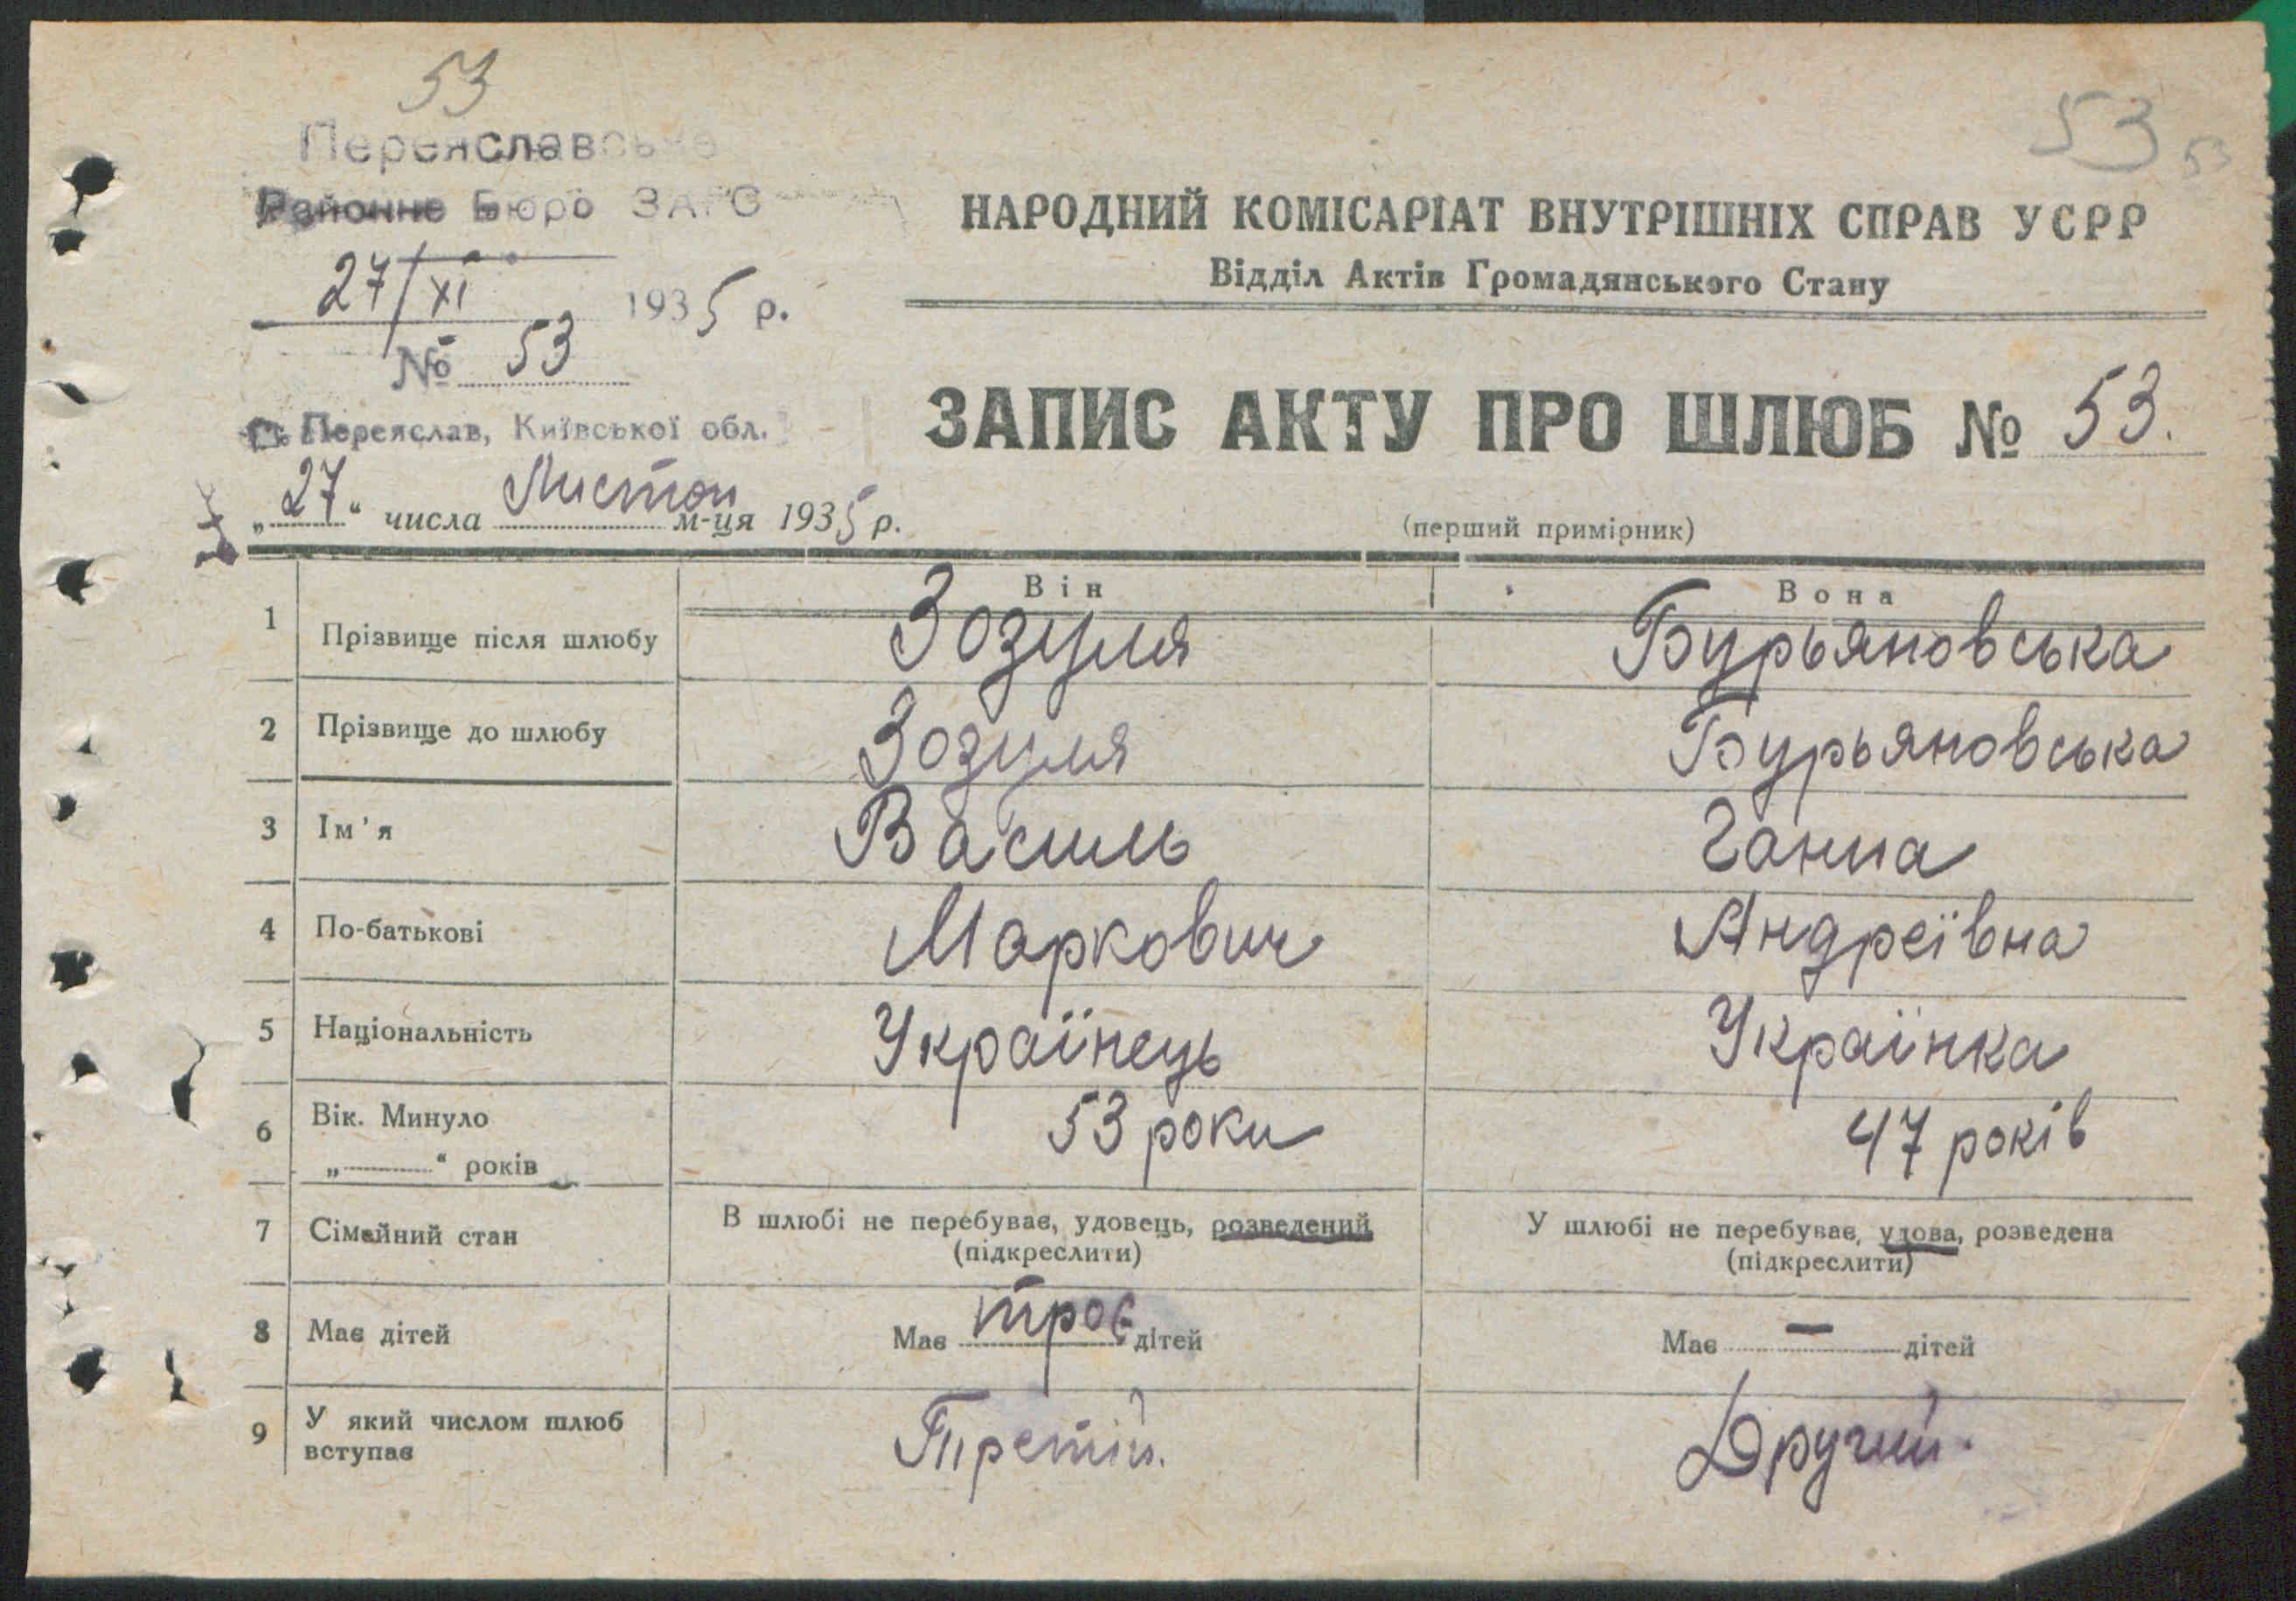 53
53 53
Переяславське
Районне Бюро ЗАГС
27/XI 1935 р.
№ 53
Переяслав, Київської обл.
"27" числа Листоп м-ця 1935 р.
НАРОДНИЙ КОМІСАРІАТ ВНУТРІШНІХ СПРАВ УСРР
Відділ Актів Громадянського Стану
ЗАПИС АКТУ ПРО ШЛЮБ № 53.
(перший примірник)
Він Вона
1 Прізвище після шлюбу Зозуля Бурьяновська
2 Прізвище до шлюбу Зозуля Бурьяновська
3 Ім'я Василь Ганна
4 По-батькові Маркович Андреївна
5 Національність Українець Українка
6 Вік. Минуло 53 роки 47 років
"............" років
7 Сімейний стан В шлюбі не перебуває, удовець, розведений У шлюбі не перебуває, удова, розведена
(підкреслити) (підкреслити)
8 Має дітей Має троє дітей Має — дітей
9 У який числом шлюб Третій. Другий.
вступає